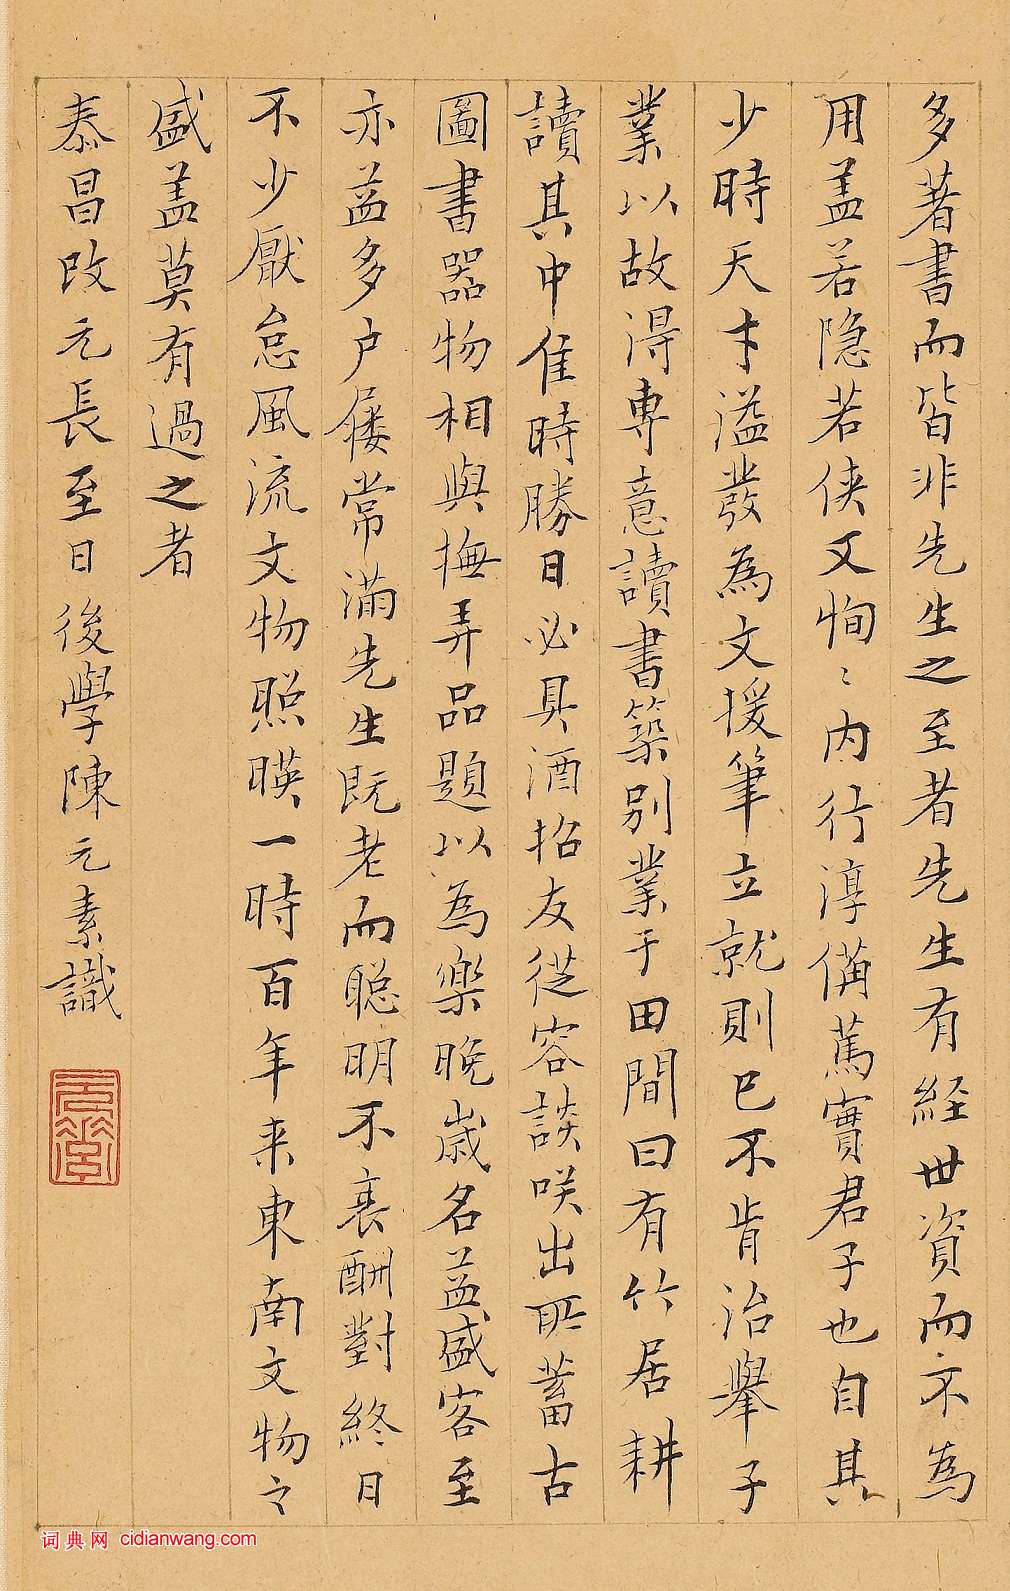 多著書而皆非先生之至者先生有経世資而不為
用盖若隐若侠又恂〻内行淳備篤實君子也自其
少時天才溢發為文援筆立就則已不肯治舉子
業以故得專意讀書築别業于田間曰有竹居耕
讀其中佳時勝日必具酒招友從容談咲出所蓄古
圖書器物相與撫弄品題以為樂晚歲名益盛客至
亦益多户屨常滿先生既老而聪明不衰酬對終日
不少厭怠風流文物照暎一時百年来東南文物之
盛盖莫有過之者
泰昌改元長至日後學陳元素識
词典网 cidianwang.com